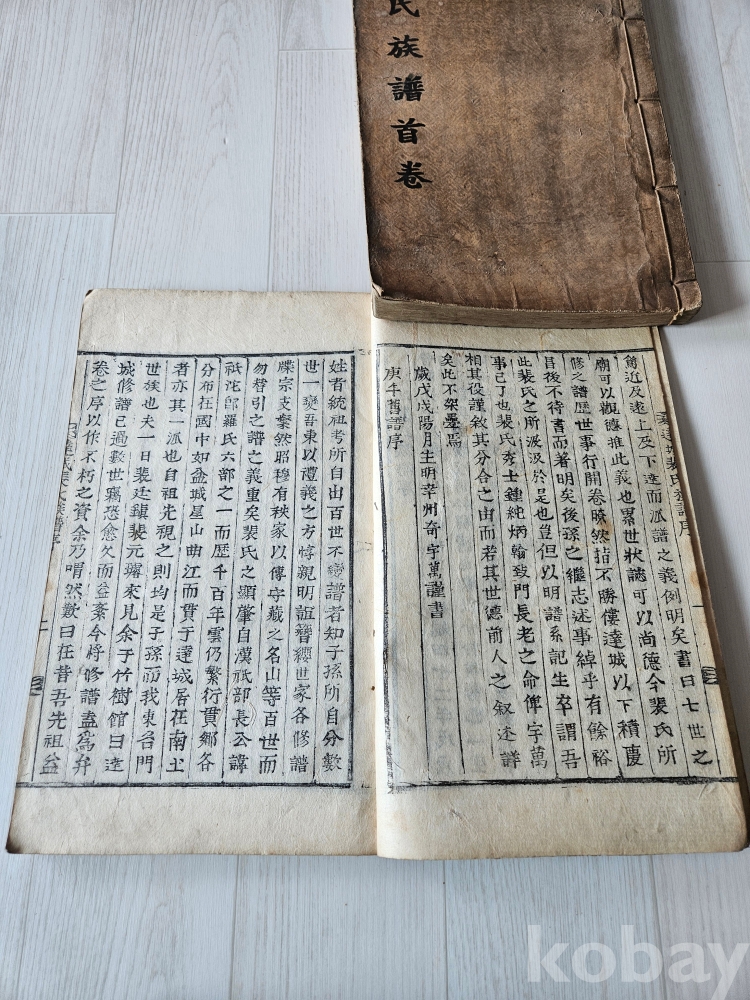 氏族譜首卷
篤近及遠上及下逮而派譜之義例明矣書曰七世之
廟可以觀德推此義也累世狀誌可以尚德今裴氏所
修之譜歷世事行開卷瞭然指不勝僂達城以下積慶
昌後不待書而著明矣後孫之繼志述事綽乎有餘裕
此裴氏之所派汲於是也豈但以明譜系記生卒謂吾
事已了也裴氏秀士鍾純炳翰致門長老之命俾宇萬
相其役謹敘其分合之由而若其世德前人之叙述詳
矣此不架疊焉
歲戊戌陽月上明幸州奇宇萬謹書
庚午舊譜序
姓者統祖考所自出百世不變譜者知子孫所自分數
世一變吾東以禮義之方惇親明誼簪纓世家各修譜
牒宗支粲然昭穆有秩家以傳守藏之名山等百世而
勿替引之譜之義重矣裴氏之顯肇自漢祇部長公諱
祇沱即羅氏六部之一而歷千百年雲仍繁行貫鄉各
分布在國中如盆城星山曲江而貫于達城居在南土
者亦其一派也自祖先視之則均是子孫而我東名門
世族也夫一日裴廷鎮裴元璿來見余于竹樹館曰達
城修譜已過數世竊恐愈久而益紊今將修譜盍為弁
卷之序以作不朽之資余乃喟然歎曰在昔吾先祖益
達城裴氏族譜序
kobay